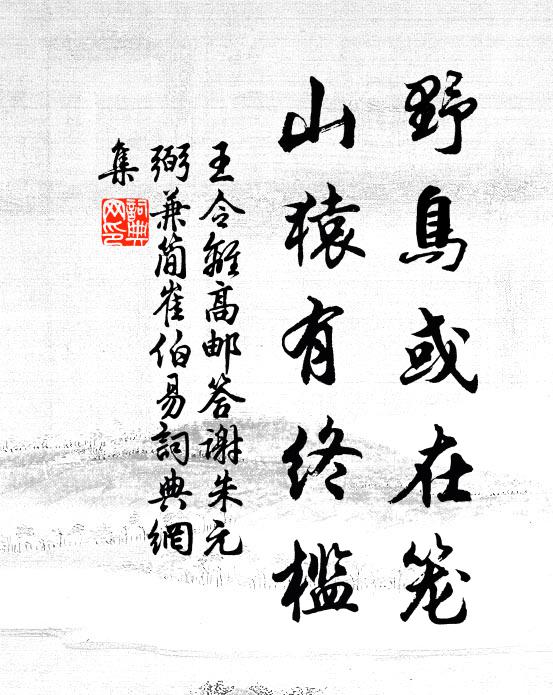 野鳥或在笼
山猿有终槛
王令離高邮答谢朱元
弼兼简崔伯易詞典網
集
詞典
网印